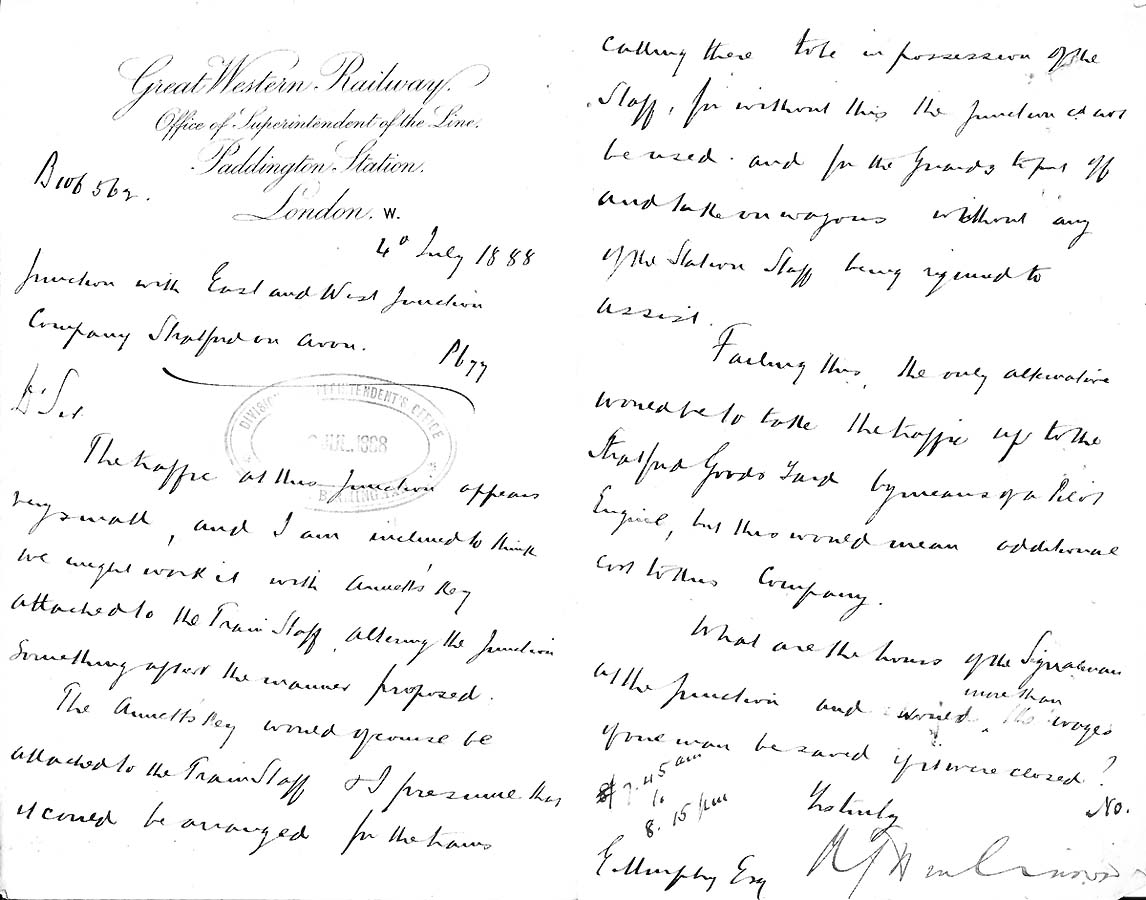 Great Western Railway.
Office of Superintendent of the Line.
Paddington Station.
London. W.
B106562.
4° July 1888
Junction with East and West Junction
Company Stratford on Avon. P677
Dr Sir
DIVISIONAL SUPERINTENDENT'S OFFICE
JUL. 1888
BIRMINGHAM
The traffic at this Junction appears
very small, and I am inclined to think
we might work it with Annett's Key
attached to the Train Staff, altering the Junction
something after the manner proposed.
The Annett's Key would of course be
attached to the Train Staff & I presume that
it could be arranged for the trains
calling there to be in possession of the
Staff, for without this the Junction cd not
be used. and for the Guards to put off
and take on wagons without any
of the Station Staff being required to
assist.
Failing this, the only alternative
would be to take the traffic up to the
Stratford Goods Yard by means of a Pilot
Engine, but this would mean additional
cost to this Company.
What are the hours of the Signalman
at the Junction and would more than the wages
of one man be saved if it were closed?
7.45 am
to
8.15 pm
No.
Yrs truly
E. Murphy Esq